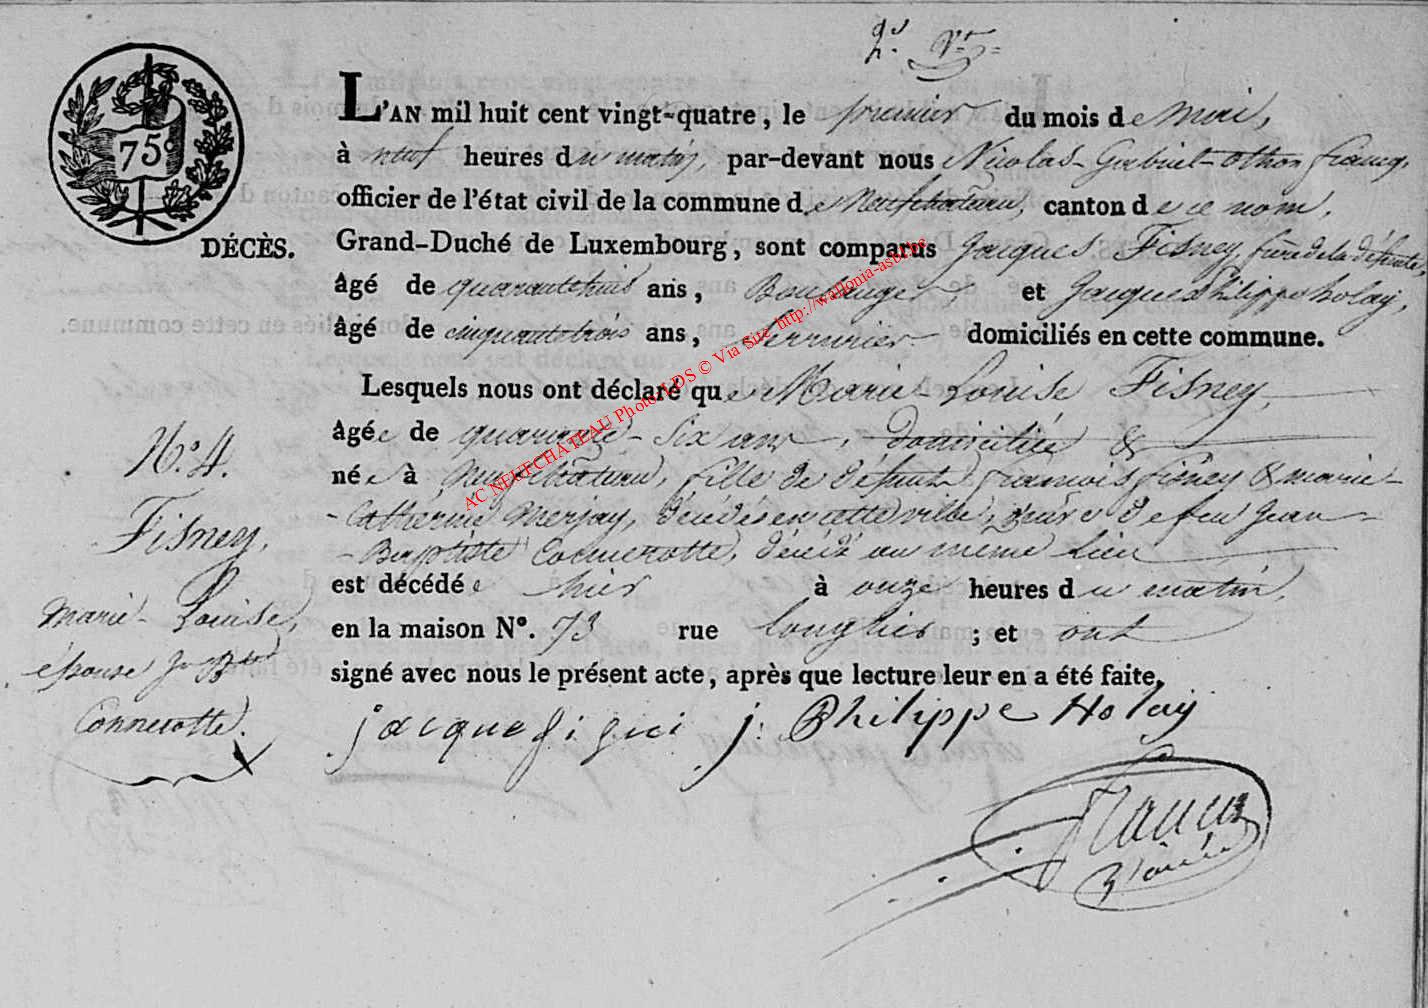 75c
DÉCÈS.
L'AN mil huit cent vingt-quatre, le premier du mois de Mai,
à neuf heures du matin, par-devant nous Nicolas-Gabriel-Othon Francq,
officier de l'état civil de la commune de Neufchateau, canton de ce nom,
Grand-Duché de Luxembourg, sont comparus Jacques Fisney, frère de la défunte
âgé de quarante huit ans, Boulanger, et Jacques Philippe holay,
âgé de cinquante trois ans, Serrurier domiciliés en cette commune.
Lesquels nous ont déclaré que Marie-Louise Fisney,
âgée de quarante-six ans, domiciliée &
née à Neufchateau, fille de defunt françois fisney & marie-
-Catherine Merjay, décédés en cette ville, de feu Jean-
-Baptiste Connerotte, décédé au même lieu
est décédée hier à onze heures du matin,
en la maison N°. 73 rue longlier ; et ont
signé avec nous le présent acte, après que lecture leur en a été faite.
N°. 4.
Fisney,
Marie-Louise,
épouse Jn Bte
Connerotte.
jacque fi j: Philippe Holay
Francq
AC NEUFCHÂTEAU Photo LDS © Via Site http://wallonia-asbl.be